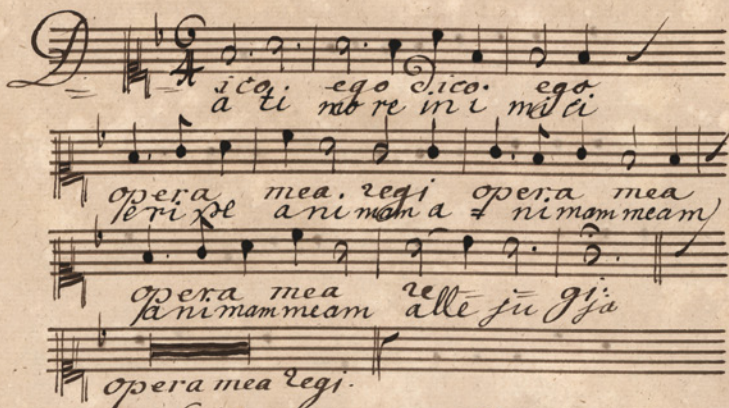 D 6/4
ico. ego dico. ego
a ti more ini mici
opera mea. regi opera mea
eripe animam a = nimam meam
opera mea re = = gi:
animam meam alle ju ja
opera mea regi.